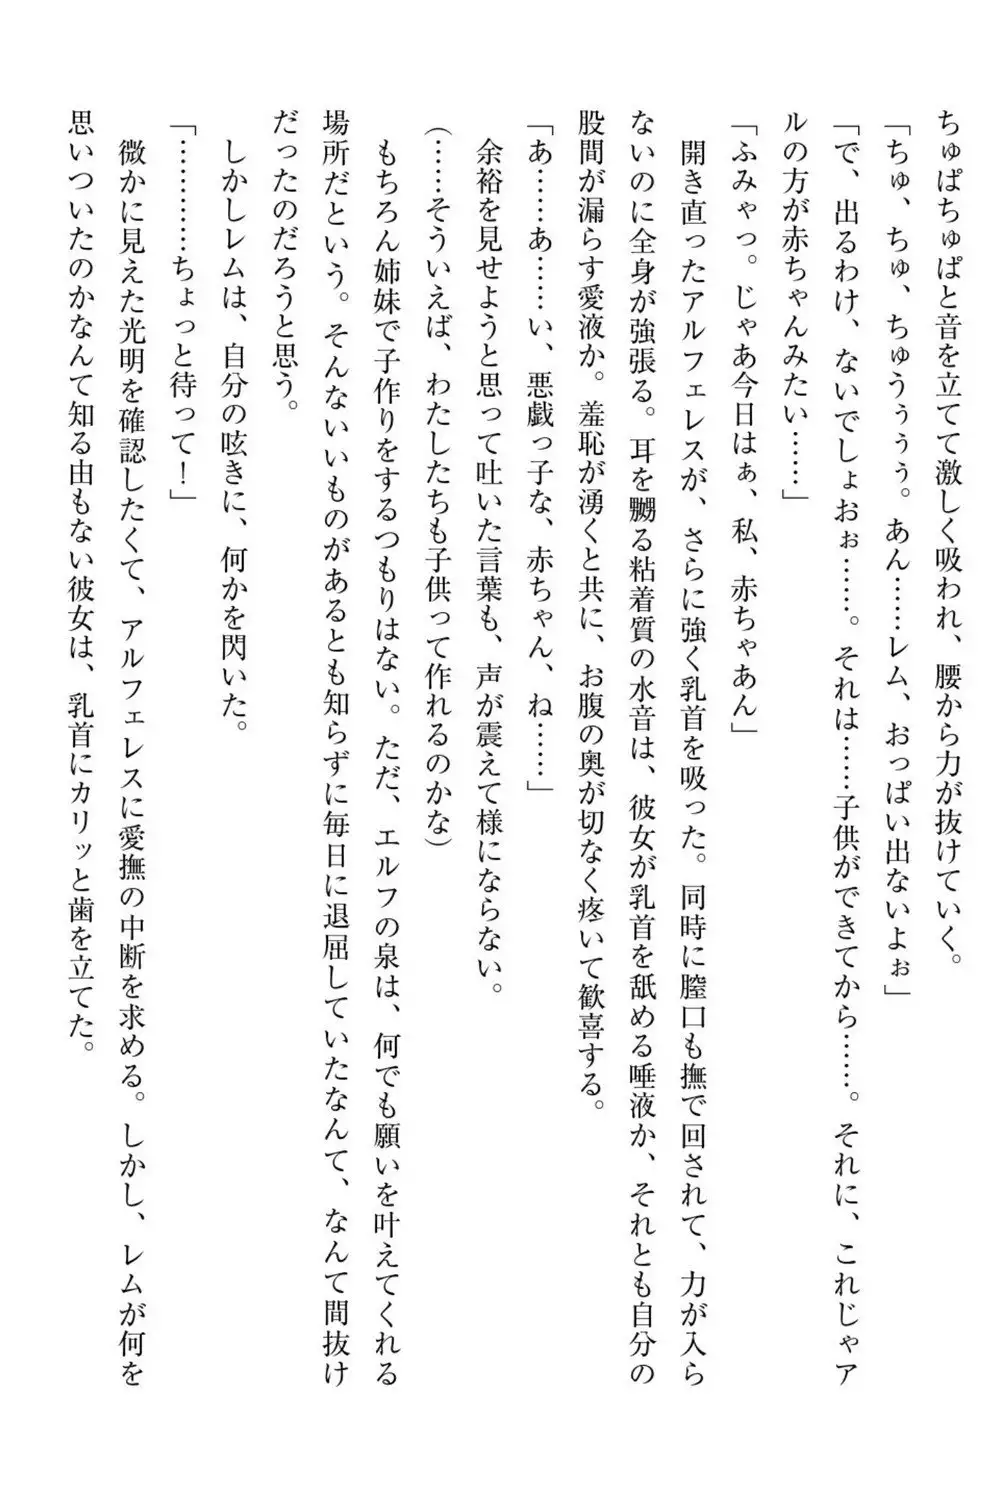 ちゅぱちゅぱと音を立てて激しく吸われ、腰から力が抜けていく。
「ちゅ、ちゅ、ちゅうぅぅぅ。あん……レム、おっぱい出ないよぉ」
「で、出るわけ、ないでしょおぉ……。それは……子供ができてから……。それに、これじゃア
ルの方が赤ちゃんみたい……」
「ふみゃっ。じゃあ今日はぁ、私、赤ちゃあん」
　開き直ったアルフェレスが、さらに強く乳首を吸った。同時に膣口も撫で回されて、力が入ら
ないのに全身が強張る。耳を嬲る粘着質の水音は、彼女が乳首を舐める唾液か、それとも自分の
股間が漏らす愛液か。羞恥が湧くと共に、お腹の奥が切なく疼いて歓喜する。
「あ……あ……い、悪戯っ子な、赤ちゃん、ね……」
　余裕を見せようと思って吐いた言葉も、声が震えて様にならない。
(……そういえば、わたしたちも子供って作れるのかな)
　もちろん姉妹で子作りをするつもりはない。ただ、エルフの泉は、何でも願いを叶えてくれる
場所だという。そんないいものがあるとも知らずに毎日に退屈していたなんて、なんて間抜け
だったのだろうと思う。
　しかしレムは、自分の呟きに、何かを閃いた。
「…………ちょっと待って！」
　微かに見えた光明を確認したくて、アルフェレスに愛撫の中断を求める。しかし、レムが何を
思いついたのかなんて知る由もない彼女は、乳首にカリッと歯を立てた。